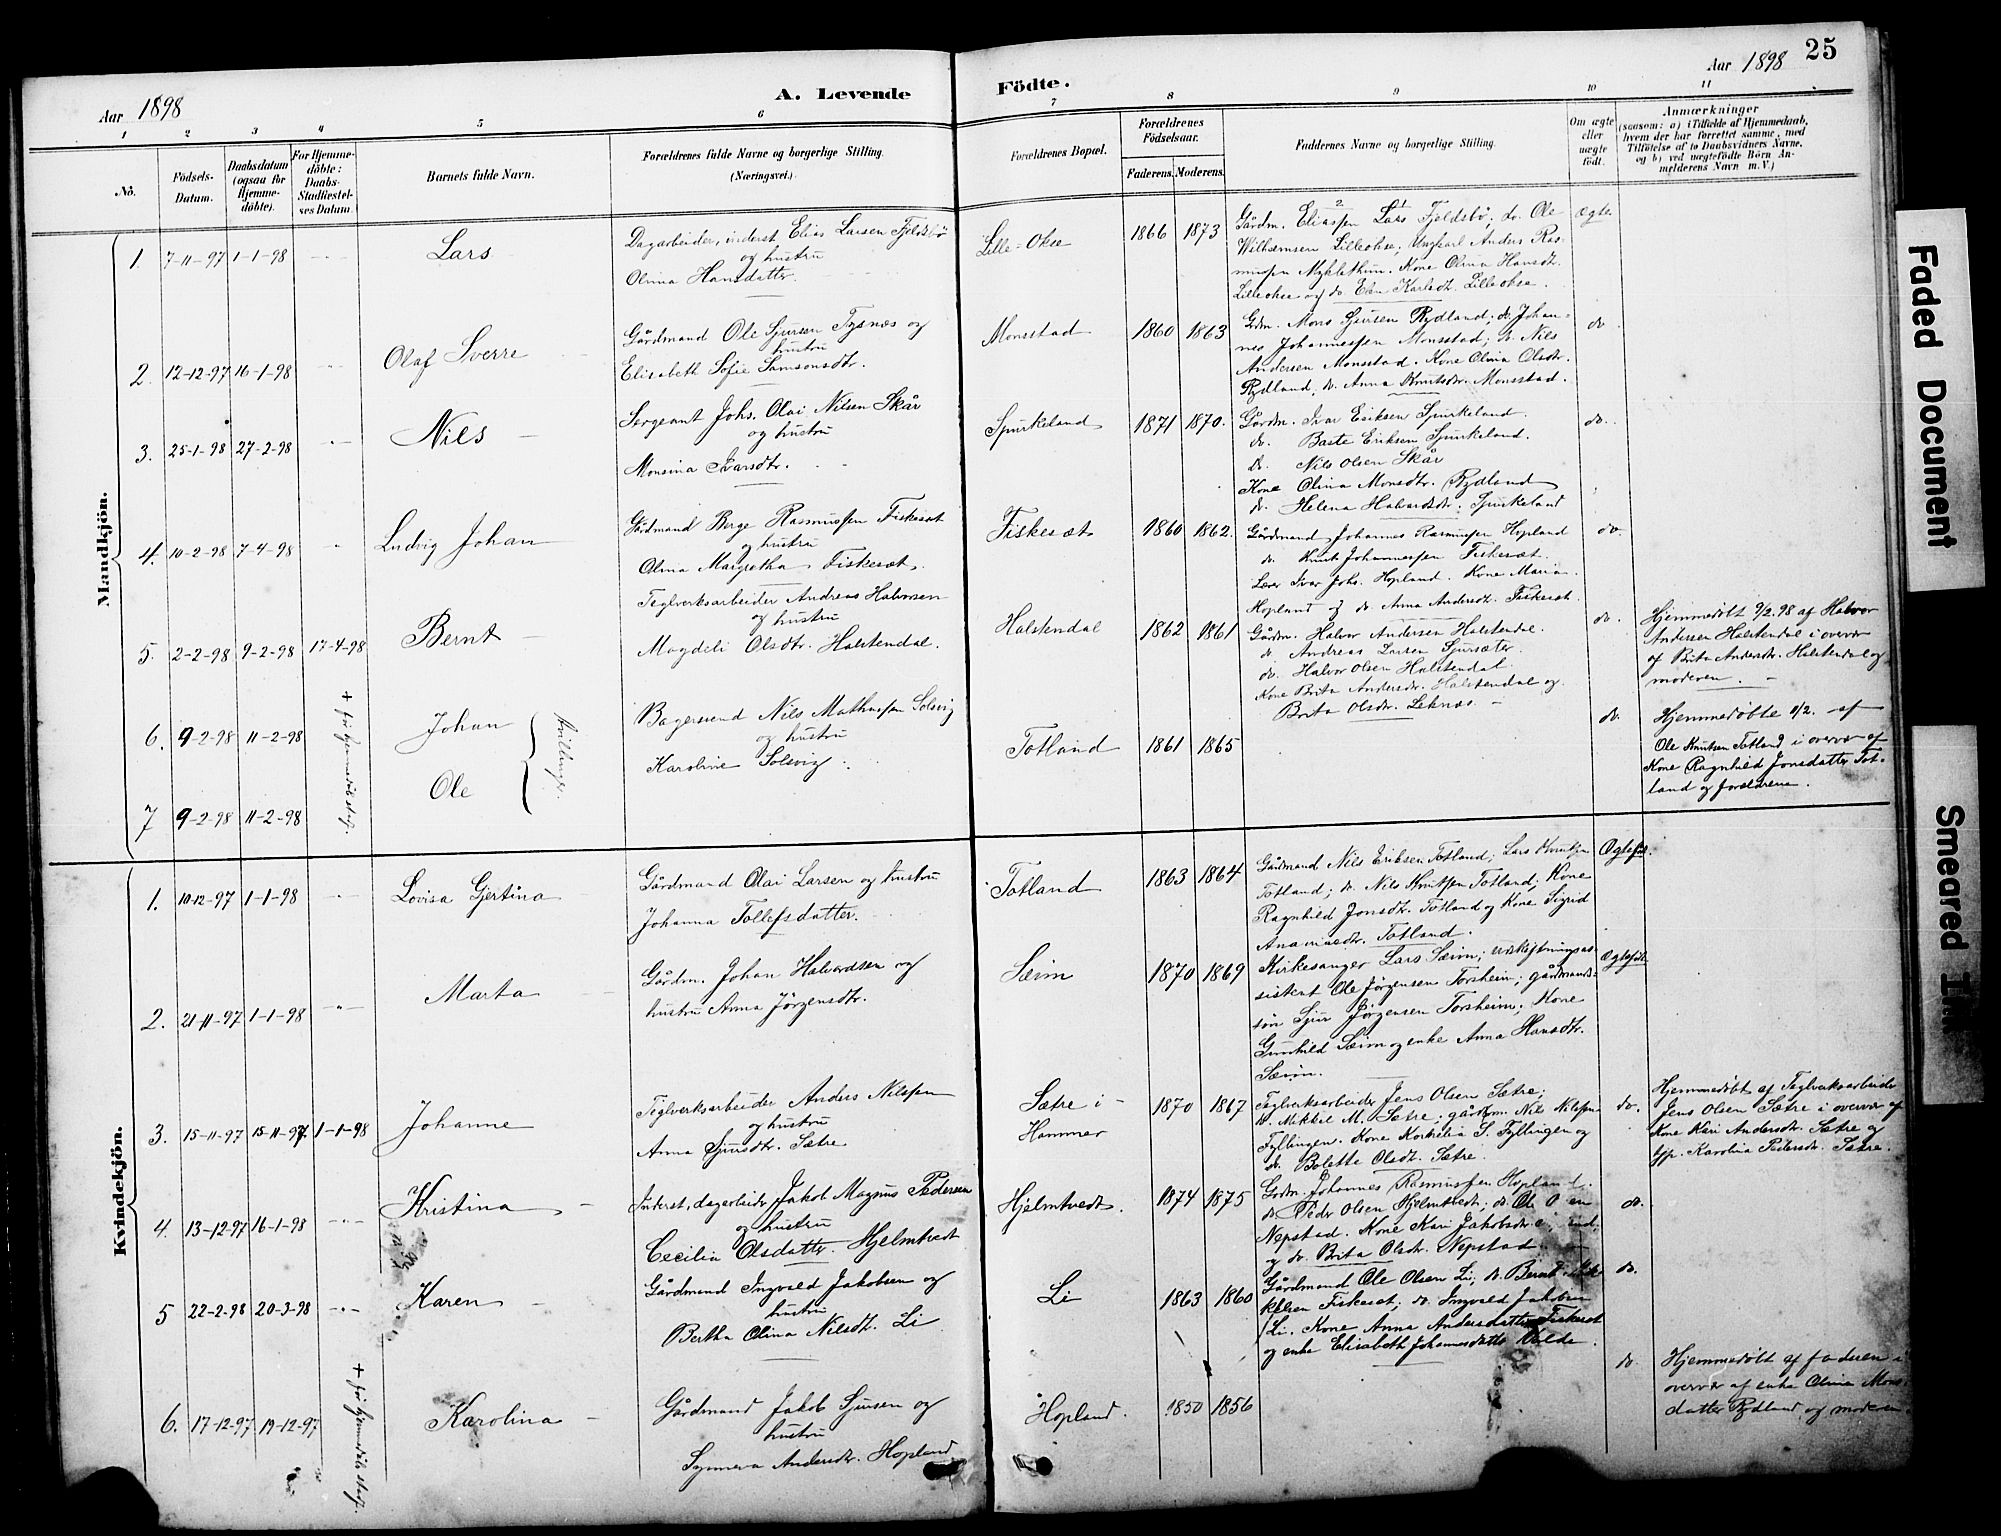 Aar 1898
A. Levende
Födte.
Aar 1898
25
1 2 3 4 5 6 7 8 9 10 11
No.
Födsels-
Datum.
Daabsdatum
(ogsaa for
Hjemme-
döbte).
For Hjemme-
döbte:
Daabs-
Stadfæstel-
ses Datum.
Barnets fulde Navn.
Forældrenes fulde Navne og borgerlige Stilling.
(Næringsvei.)
Forældrenes Bopæl.
Forældrenes
Födselsaar.
Faderens. Moderens.
Faddernes Navne og borgerlige Stilling.
Om ægte
eller
uægte
födt.
Anmærkninger
(saasom: a) i Tilfælde af Hjemmedaab,
hvem der har forrettet samme, med
Tilföielse af to Daabsvidners Navne,
og b) ved uægtefödte Börn An-
melderens Navn m. V.)
Mandkjön.
1. 7-11-97 1-1-98 Lars
Dagarbeider, inderst Elias Larsen Fjeldsbö
og hustru
Olina Hansdatter.
Lille-Okse 1866 1873
Gårdm. Eliassen Lars Fjeldsbö; do. Ole
Wilhemsen Lilleokse, Ungkarl Anders Ras-
mussen Myklethun. Kone Olina Hansdt.
Lilleokse og do. Karlsdt. Lilleokse.
Ægte
2. 12-12-97 16-1-98 Olaf Sverre
Gårdmand Ole Sjursen Tysnes og
hustru
Elisabeth Sofie Samsonsdtr.
Monsstad 1860 1863
Gdm. Mons Sjursen Rydland; do. Johan-
nes Johannessen Monsstad; do. Nils
Andersen Monsstad. Kone Olina Olsdtr.
Rydland, do. Anna Knutsdtr. Monsstad.
do.
3. 25-1-98 27-2-98 Nils
Sergeant Johs. Olai Nilsen Skår
og hustru
Monsina Ivarsdtr.
Spurkeland 1871 1870.
Gårdm. Ivar Eriksen Spurkeland.
do. Baste Eriksen Spurkeland.
do. Nils Olsen Skår
Kone Olina Monsdtr. Rydland
do. Helena Halvardsdtr. Spurkeland
do.
4. 10-2-98 7-4-98 Ludvig Johan
Gårdmand Berge Rasmussen Fiskesæt
og hustru
Olina Margretha Fiskesæt.
Fiskesæt 1860 1862.
Gårdmand Johannes Rasmussen Hopland
do. Knut Johannessen Fiskesæt.
Lærer Ivar Johs. Hopland. Kone Maria
Hopland og do. Anna Andersdt. Fiskesæt.
do.
5. 2-2-98 9-2-98 17-4-98 Bernt
Teglverksarbeider Andreas Halvorsen
og hustru
Magdeli Olsdtr. Halstendal.
Halstendal 1862 1861
Gårdm. Halvor Andersen Halstendal.
do. Andreas Larsen Sjursæter.
do. Halvor Olsen Halstendal.
Kone Brita Andersdtr. Halstendal og
Brita Olsdtr. Leknes.
do.
Hjemmedöbt 9/2.98 af Halvor
Andersen Halstendal i overvær
af Brita Andersdtr. Halstendal og
moderen.
6. 9-2-98 11-2-98 Johan
7 9-2-98 11-2-98 Ole
+ för hjemmedåb stadf.
Tvillinger
Bagersvend Nils Mathissen Solsvig
og hustru
Karoline Solsvig
Totland 1861 1865
do.
Hjemmedöbte 11/2. af
Ole Knutsen Totland i overvær af
Kone Ragnhild Jonsdatter Tot-
land og forældrene.
Kvindekjön.
1. 10-12-97 1-1-98 Lovisa Gjertina
Gårdmand Olai Larsen og hustru
Johanna Tollefsdatter.
Totland 1863 1864
Gårdmand Nils Eriksen Totland; Lars Knutsen
Totland; do. Nils Knutsen Totland; Kone
Ragnhild Jonsdtr. Totland og Kone Sigrid
Totland.
Ægtefödt.
2. 21-11-97 1-1-98 Marta
Gårdm. Johan Halvardsen og
hustru Anna Jörgensdtr.
Sæim 1870 1869
Kirkesanger Lars Sæim; udskiftningsas-
sistent Ole Jörgensen Torsheim; gårdmands-
sön Sjur Jörgensen Torsheim; Kone
Gunhild Sæim og enke Anna Hansdtr.
Sæim.
Ægtefödt
3. 15-11-97 15-11-97 1-1-98 Johanne
Teglverksarbeider Anders Nilssen
og hustru
Anna Sjursdtr. Sætre
Sætre i
Hammer
1870 1867
Teglverksarbeider Jens Olsen Sætre;
do. Mikkel M. Sætre; gårdm. Nils Nilssen
Fyllingen. Kone Kornelia S. Fyllingen og
do. Bolette Olsdt. Sætre.
do.
Hjemmedöbt af Teglverksarbeider
Jens Olsen Sætre i overvær af
Kone Kari Andersdtr. Sætre og
Karolina Pedersdtr. Sætre.
4. 13-12-97 16-1-98 Kristina
Inderst, dagarbeider Jakob Magnus Pedersen
og hustru
Cecilia Olsdatter. Hjelmtvedt
Hjelmtvedt. 1874 1875
Gårdm. Johannes Rasmussen Hopland.
do. Peder Olsen Hjelmtvedt; do. Ole
Nepstad. Kone Kari Jakobsdtr.
og do. Brita Olsdtr. Nepstad.
do.
5 22-2-98 20-3-98 Karen
Gårdmand Ingvald Jakobsen og
hustru
Bertha Olina Nilsdt. Li
Li 1863 1860
Gårdmand Ole Olsen Li; do. Bernt Mik-
kelsen Fiskeset; do. Ingvald Jakobsen
Li. Kone Anna Andersdatter Fiskeset
og enke Elisabeth Johannesdatter
do.
6. 17-12-97 19-12-97 Karolina
+ för hjemmedåb stadf.
Gårdmand Jakob Sjursen og
hustru
Synneva Andersdtr. Hopland
Hopland. 1850 1856
do.
Hjemmedöbt af faderen i
overvær af enke Olina Mons-
datter Rydland og moderen.
Faded Document
Smeared